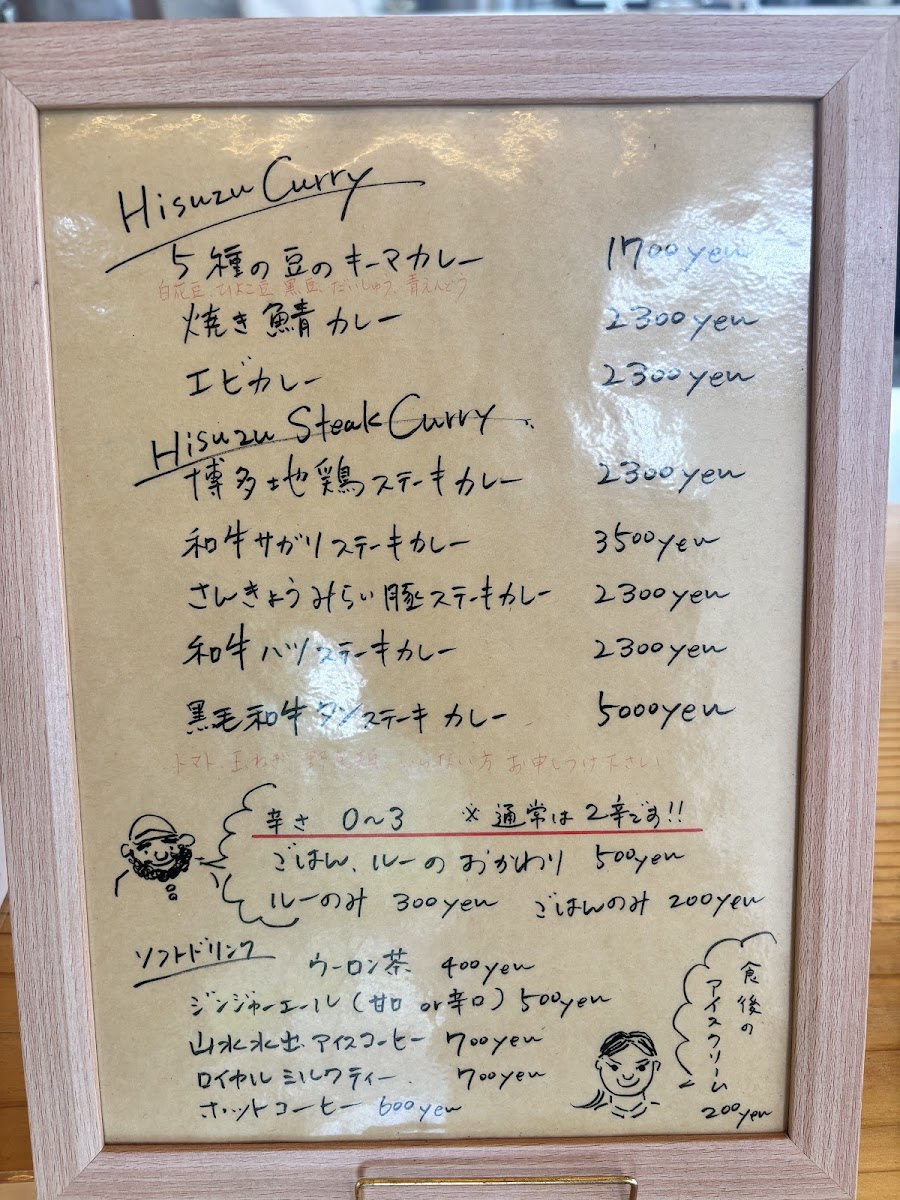 Hisuzu Curry
5種の豆のキーマカレー 1700yen
白花豆、ひよこ豆、黒豆、だいしゅう、青えんどう
焼き鯖カレー 2300yen
エビカレー 2300yen
Hisuzu Steak Curry
博多地鶏ステーキカレー 2300yen
和牛サガリステーキカレー 3500yen
さんきょうみらい豚ステーキカレー 2300yen
和牛ハツステーキカレー 2300yen
黒毛和牛タンステーキカレー 5000yen
トマト、玉ねぎ 方 お申しつけ下さい
辛さ 0〜3 ※通常は2辛です!!
ごはん、ルーのおかわり 500yen
ルーのみ 300yen ごはんのみ 200yen
ソフトドリンク
ウーロン茶 400yen
ジンジャーエール(甘口 or 辛口) 500yen
山水水出アイスコーヒー 700yen
ロイヤルミルクティー 700yen
ホットコーヒー 600yen
食後の
アイスクリーム
200yen